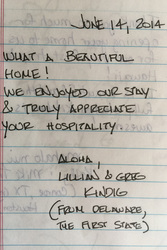 JUNE 14, 2014
WHAT A BEAUTIFUL
HOME!
WE ENJOYED OUR STAY
& TRULY APPRECIATE
YOUR HOSPITALITY.
ALOHA,
LILLIAN & GREG
KINDIG
(FROM DELAWARE,
THE FIRST STATE)